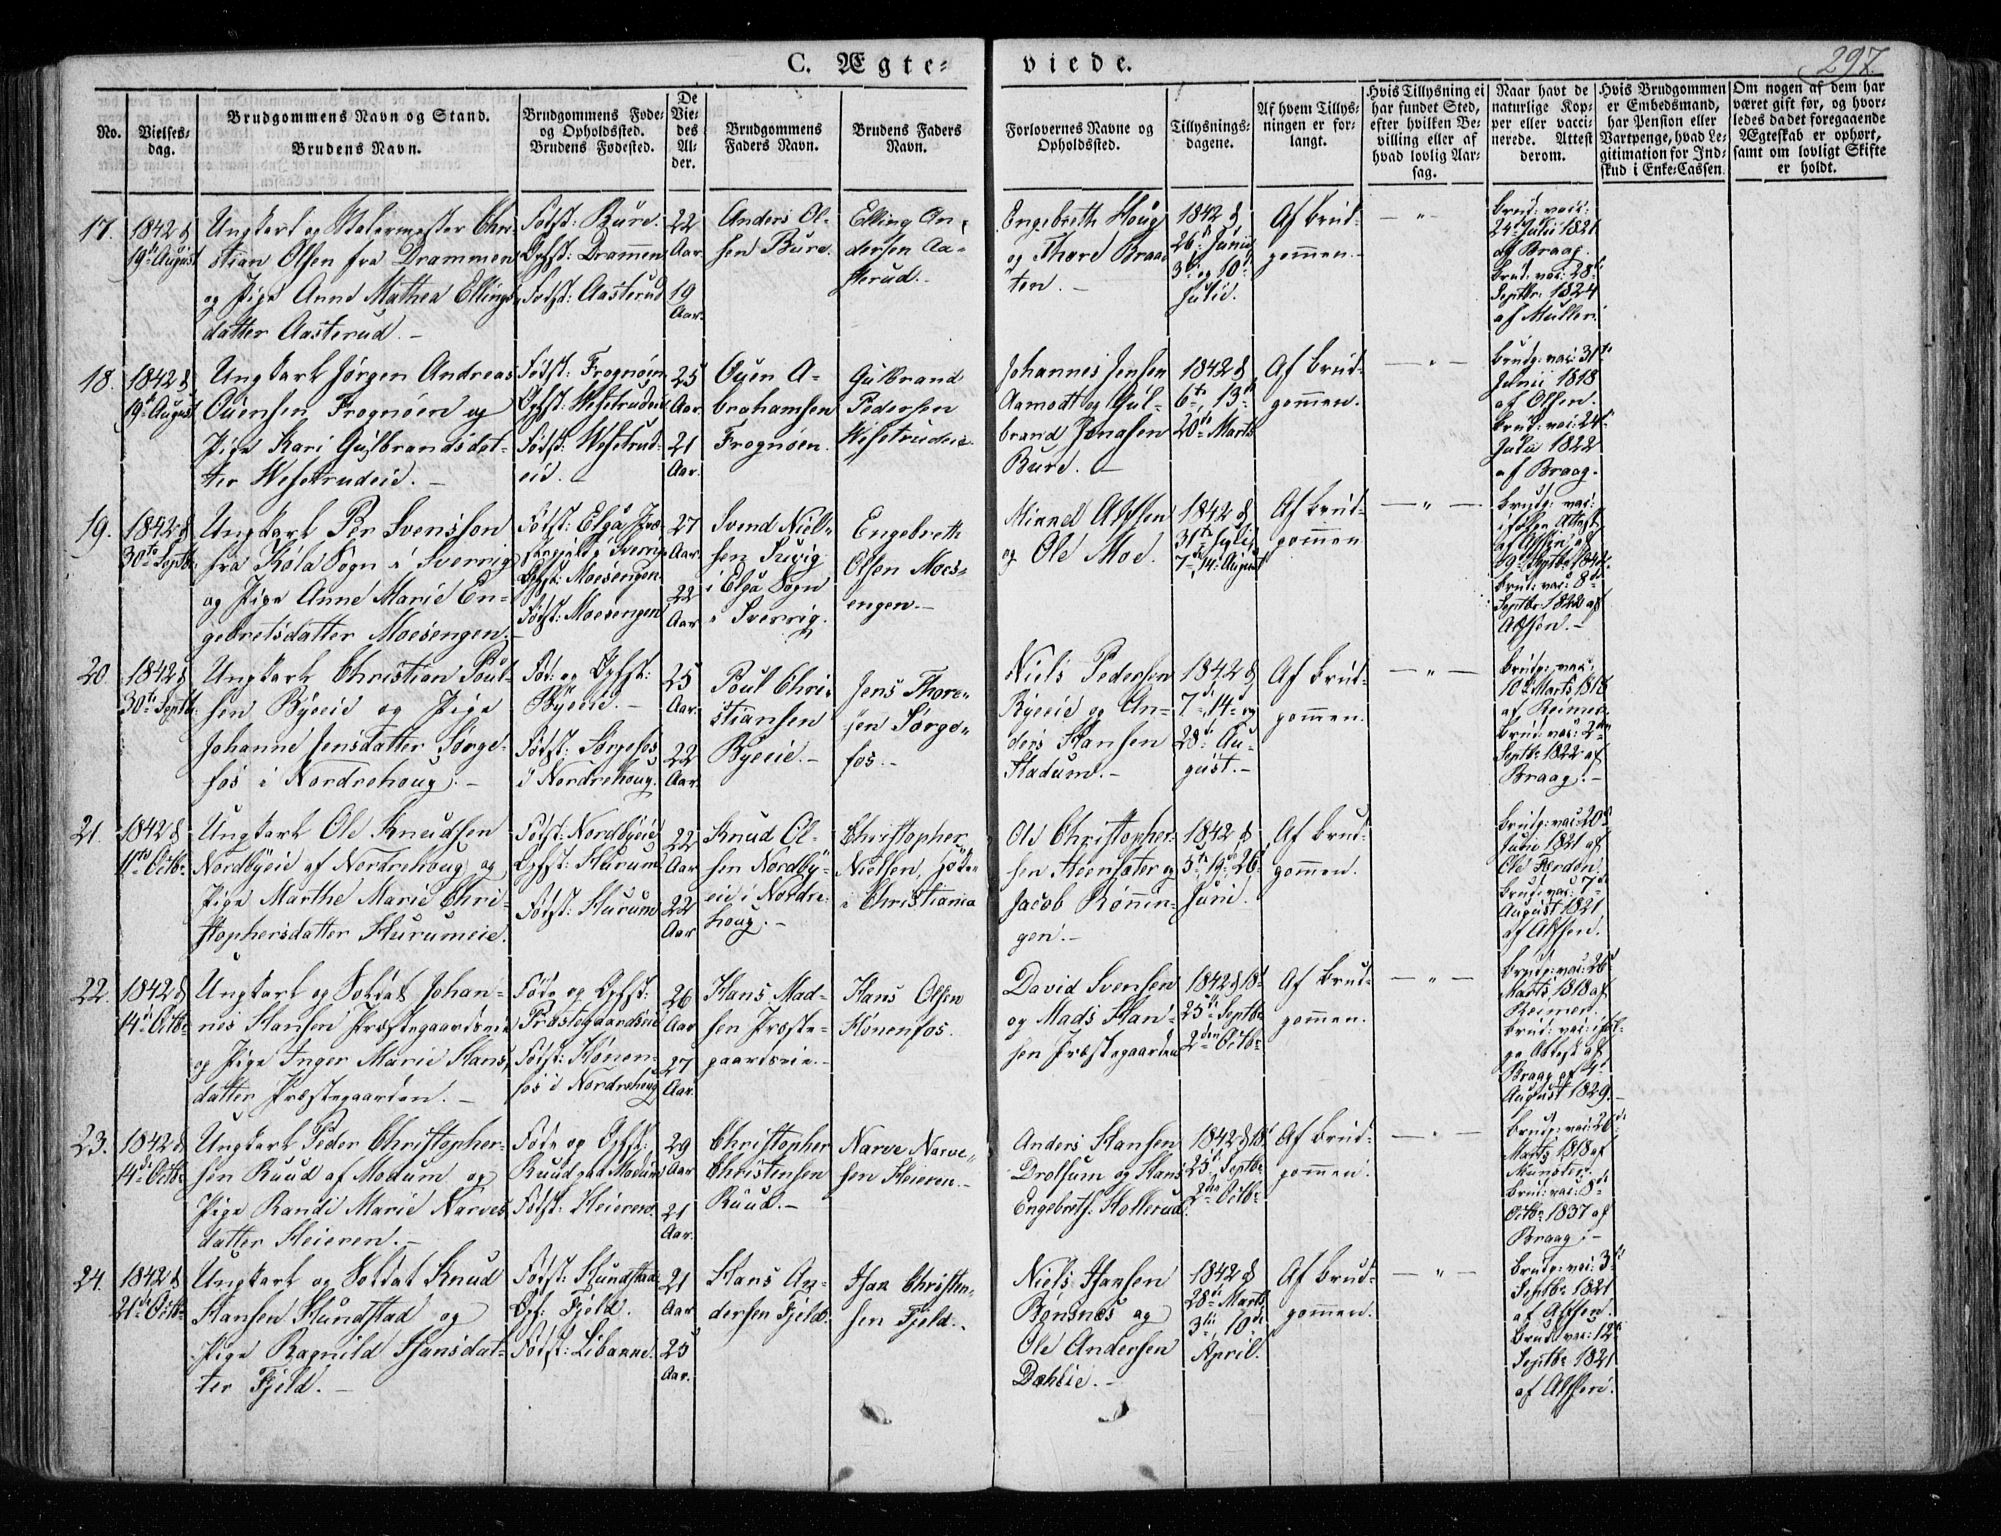 C. Ægte-
viede.
297.
No.
Vielses-
dag.
Brudgommens Navn og Stand.
Brudens Navn.
Brudgommens Føde-
og Opholdssted.
Brudens Fødested.
De
Vie-
des
Al-
der.
Brudgommens
Faders Navn.
Brudens Faders
Navn.
Forlovernes Navne og
Opholdssted.
Tillysnings-
dagene.
Af hvem Tillys-
ningen er for-
langt.
Hvis Tillysning ei
har fundet Sted,
efter hvilken Be-
villing eller af
hvad lovlig Aar-
sag.
Naar havt de
naturlige Kop-
per eller vacci-
nerede. Attest
derom.
Hvis Brudgommen
er Embedsmand,
har Pension eller
Vartpenge, hvad Le-
gitimation for Ind-
skud i Enke-Cassen.
Om nogen af dem har
været gift før, og hvor-
ledes da det foregaaende
Ægteskab er ophørt,
samt om lovligt Skifte
er holdt.
17.
1842 d
19d August
Ungkarl og Malermester Chri-
stian Olsen fra Drammen
og Pige Anne Mathea Ellings-
datter Aasterud. -
Fødst: Bure.
Ophst: Drammen
Fødst: Aasterud
22
Aar
19
Aar.
Anders Ol-
sen Bure.
Elling An-
dersen Aa-
sterud.
Engebreth Houg
og Thore Braa-
ten. -
1842 d
26d Junii
3die og 10de
Julii.
Af Brud-
gommen. -
- " -
Brud: vac:
24d Julii 1821
af Braag.
Brud: vac: 28de
Septbr 1824
af Muller.
18.
1842 d
19d August
Ungkarl Jørgen Andreas
Ouensen Frognøen og
Pige Kari Gulbrandsdat-
ter Wesetrudeie. -
Fødst: Frognøen
Ophst: Wesetrudeie
Fødst: Wesetrud-
eid. -
25
Aar.
21
Aar.
Ouen A-
brahamsen
Frognøen.
Gulbrand
Pedersen
Wesetrudeie.
Johannes Jensen
Aamodt og Gul-
brand Jonasen
Bure. -
1842 d
6te, 13de
20de Marts
Af Brud-
gommen.
- " -
Brudg: vac: 31te
Junii 1818
af Olsen.
Brud: vac: 24de
Julii 1822
af Braag.
19.
1842 d
30te Septbr
Ungkarl Per Svensson
fra Köla Sogn i Sverrig
og Pige Anne Marie En-
gebretsdatter Moesengen. -
Fødst: Elgå
i Sverrig
Ophst: Moesengen
Fødst: Moesengen
27
Aar.
22
Aar
Svend Niel-
sen
i Elgå Sogn
i Sverrig.
Engebreth
Olsen Moes-
engen. -
Mikkel Alfsen
og Ole Moe.
1842 d
31te Julii
7de, 14de August
Af Brud-
gommen
- " -
Brudg: vac:
ifølge Attest
af Alfsen af
19de Septbr 1842.
Brud: vac: 8de
Septbr 1822 af
Alfsen. -
20.
1842 d
30te Septbr.
Ungkarl Christian Poul-
sen Byeeie og Pige
Johanne Jensdatter Sørge-
fos i Nordrehoug. -
Fød: og Ophst:
Byeeie. -
Fødst: Sørgefos
i Nordrehoug.
25
Aar.
22
Aar.
Poul Chri-
stiansen
Byeeie. -
Jens Thore-
sen Sørge-
fos. -
Niels Pedersen
Byeeie og An-
ders Hansen
Stadum. -
1842 d
7de, 14de og
28de Au-
gust. -
Af Brud-
gommen.
- " -
Brudg: vac:
10de Marts 1818
af Reimer.
Brud: vac: 2den
Septbr 1822 af
Braag. -
21.
1842 d
11te Octbr
Ungkarl Ole Knudsen
Nordbyeie af Nordrehoug og
Pige Marthe Marie Chri-
stophersdatter Hurumeie.
Fødst: Nordbyeie
Ophst: Hurum
Fødst: Hurum
22
Aar
22
Aar
Knud Ol-
sen Nordby-
eie i Nordre-
houg. -
Christopher
Nielsen,
i Christiania
Ole Christopher-
sen Steensæter og
Jacob Rønin-
gen. -
1842 d
5te, 19de, 26de
Juni
Af Brud-
gommen.
Brudg: vac: 20de
Juni 1821 af
Ole Hordon
Brud: vac: 7de
August 1821
af Alfsen.
22.
1842 d
14de Octbr
Ungkarl og Soldat Johan-
nes Hansen Præstegaardseie
og Pige Inger Marie Hans-
datter Præstegaarden. -
Føde og Ophst:
Præstegaardseie
Fødst: Hønen-
fos i Nordrehoug
26
Aar
27
Aar.
Hans Mad-
sen Præste-
gaardseie. -
Hans Olsen
Hønenfos.
David Svensen
og Mads Han-
sen Præstegaarden
1842 d 18de
25de Septbr
2den Octbr
Af Brud-
gommen.
- " -
Brudg: vac: 26de
Marts 1818 af
Reimer.
Brud: vac: iføl-
ge Attest af
Braag af 4de
August 1829. -
23.
1842 d
14de Octbr
Ungkarl Peder Christopher-
sen Ruud af Modum og
Pige Randi Marie Narves-
datter Heieren. -
Føde og Ophst:
Ruud paa Modum
Fødst: Heieren
29
Aar
21
Aar.
Christopher
Christensen
Ruud. -
Narve Narve-
sen Heieren. -
Anders Hansen
Drolsum og Hans
Engebrets. Hollerud.
1842 d 18de
25de Septbr
2den Octbr
Af Brud-
gommen.
- " -
Brudg: vac: 26de
Marts 1818 af
Münster.
Brud: vac: 8de
Octbr 1837 af
Braag. -
24.
1842 d
21de Octbr
Ungkarl og Soldat Knud
Hansen Hundstad og
Pige Ragnild Isansdat-
ter Fjeld. -
Fødst: Hundstad
Oph: Fjeld.
Fødst: Libanne.
21
Aar
25
Aar.
Hans An-
dersen Fjeld.
Isax Christen-
sen Fjeld. -
Niels Hansen
Bønsnæs og
Ole Andersen
Dæhlie. -
1842 d
28de Marts
3die, 10de
April.
Af Brud-
gommen.
- " -
Brudg: vac: 3die
Septbr 1821
af Alfsen.
Brud: vac: 12te
Septbr 1821
af Alfsen.